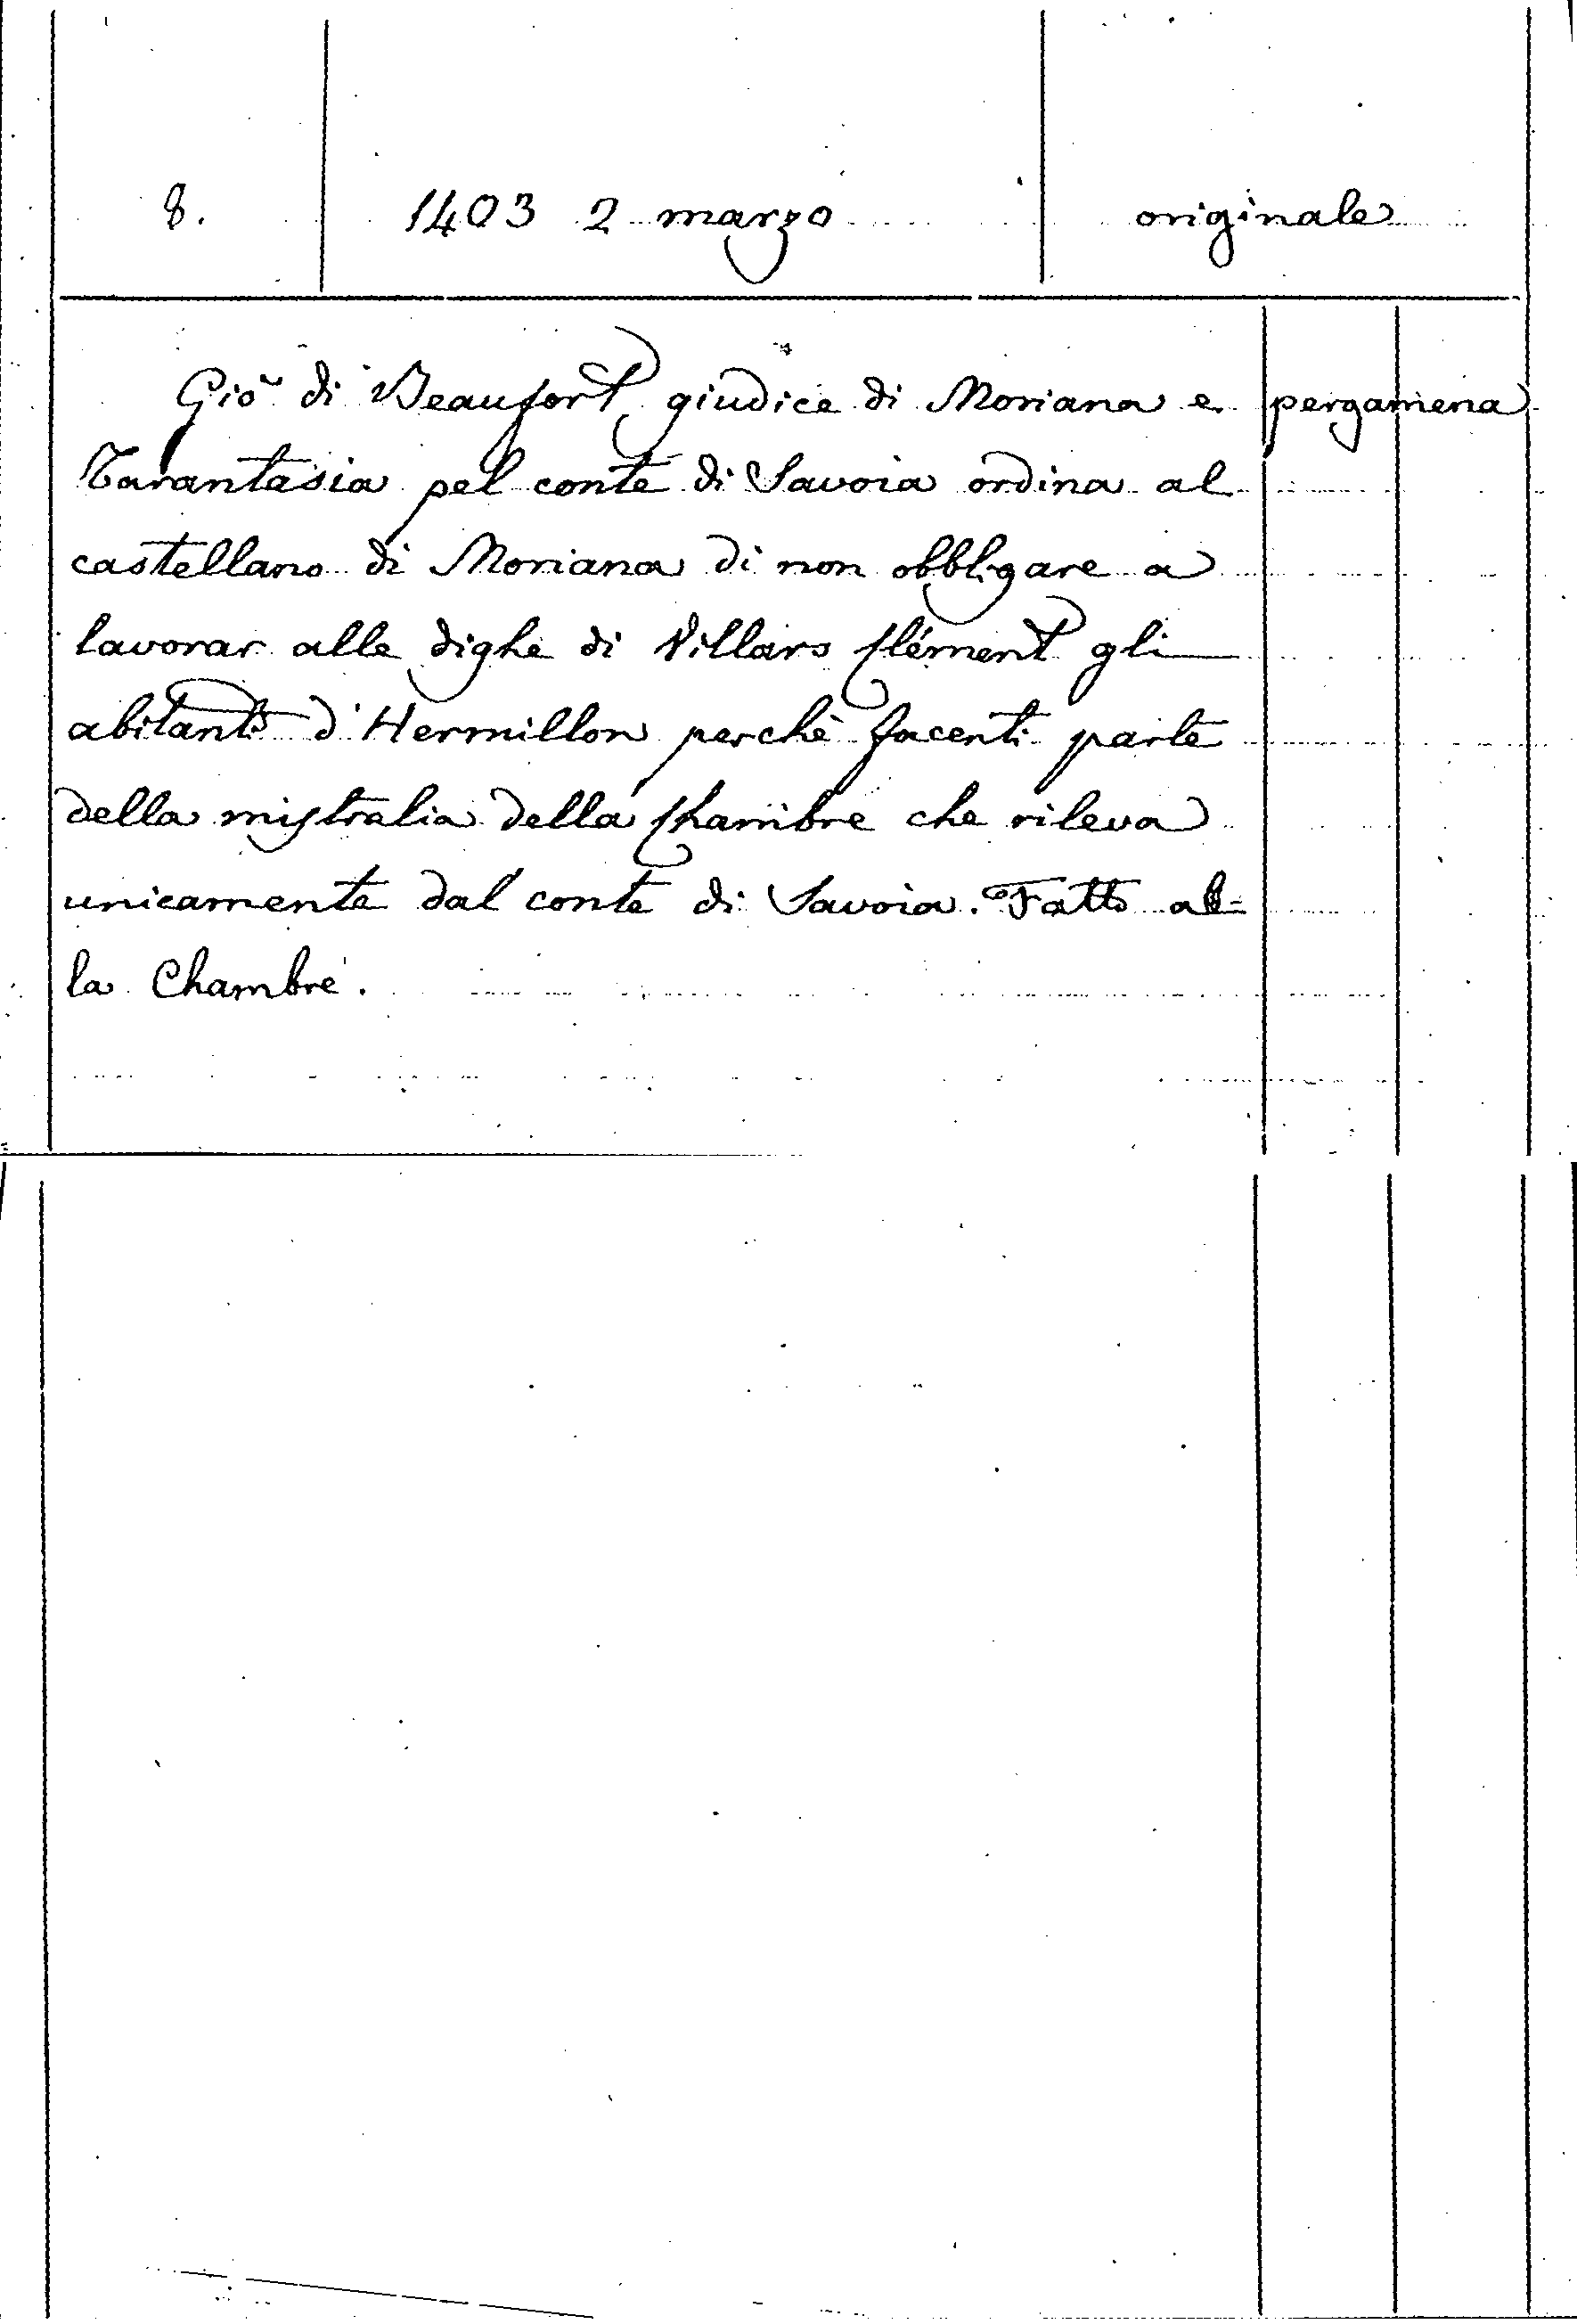 8. 1403 2 marzo originale
Gio˜ di Beaufort giudice di Moriana e pergamena
Tarantasia pel conte di Savoia ordina al
castellano di Moriana di non obbligare a
lavorar alle dighe di Villars Clément gli
abitanti d'Hermillon perchè facenti parte
della mistralia della Chambre che rileva
unicamente dal conte di Savoia. Fatto al=
la Chambre.